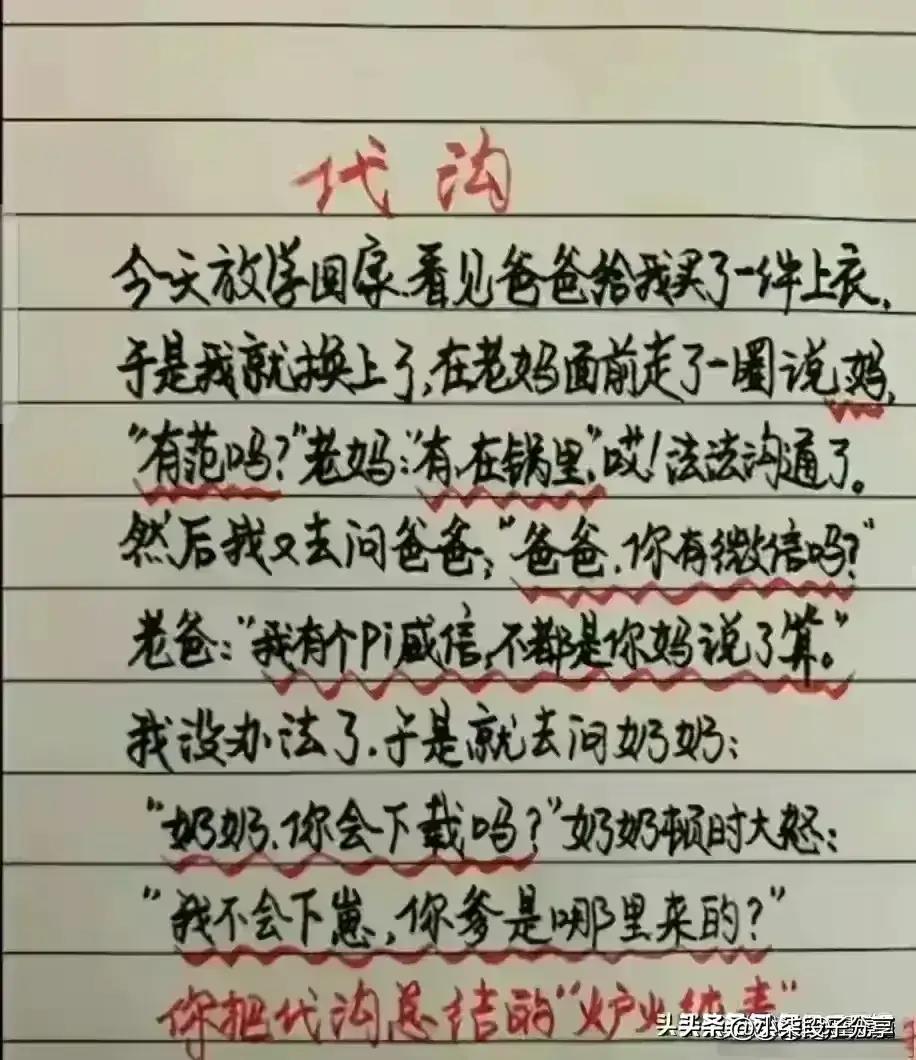 代沟
今天放学回家.看见爸爸给我买了一件上衣,
于是我就换上了,在老妈面前走了一圈说,妈,
"有范吗?"老妈:"有,在锅里",哎!法法沟通了。
然后我又去问爸爸;"爸爸.你有微信吗?"
老爸:"我有个Pi威信,不都是你妈说了算。"
我没办法了.于是就去问奶奶:
"奶奶.你会下载吗?"奶奶顿时大怒:
"我不会下崽,你爹是哪里来的?"
你把代沟总结的"炉火纯青"
头头条@小柴段子分享